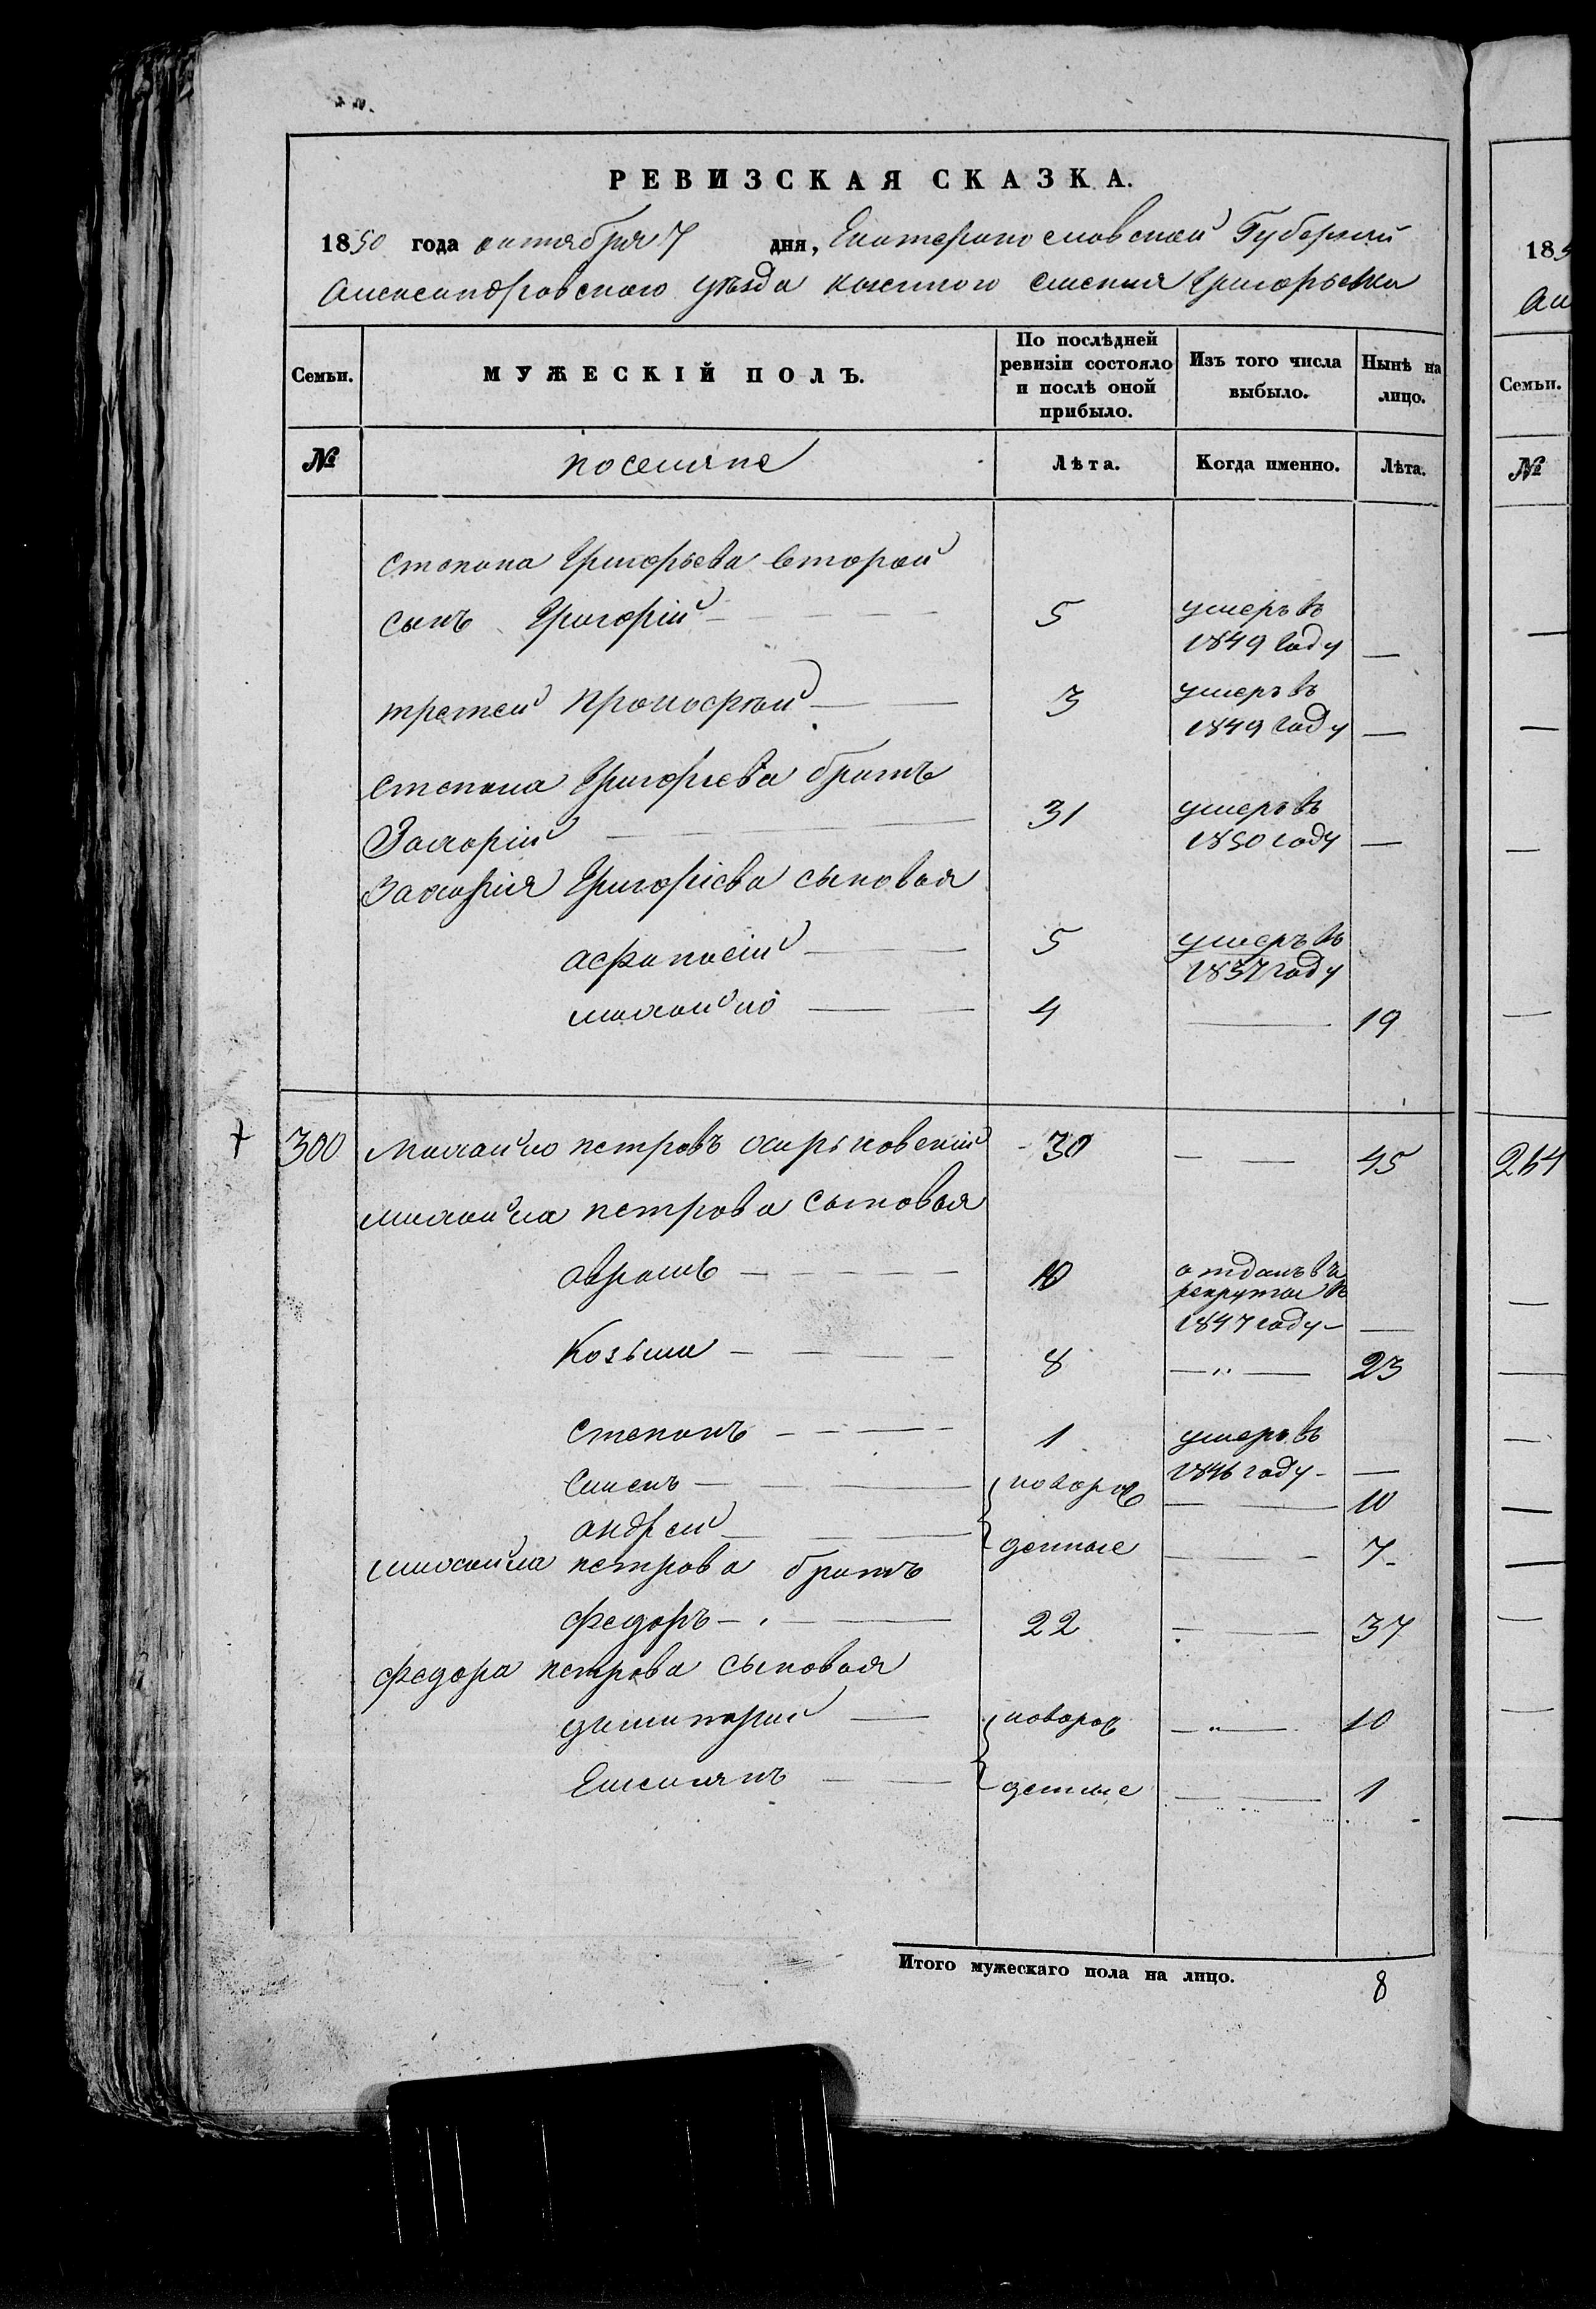 РЕВИЗСКАЯ СКАЗКА.
1850 года октября 7 дня, Екатеринославской Губернии
Александровского уѣзда казенного селения Григорьевка
Семьи.
МУЖЕСКІЙ ПОЛЪ.
По послѣдней ревизіи состояло и послѣ оной прибыло.
Изъ того числа выбыло.
Нынѣ на лицо.
№ поселяне Лѣта. Когда именно. Лѣта.
Степана Григорьева второй
сынъ Григорій 5 умеръ въ 1849 году —
третей Прокофѣй 3 умеръ въ 1849 году —
Степана Григорьева братъ
Захарій 31 умеръ въ 1850 году —
Захарія Григоріева сыновья
афанасій 5 умеръ въ 1837 году
михайло 4 — 19
300 Михайло петровъ 30 — — 45
михайла петрова сыновья
аврамъ 10 отданъ въ рекруты въ 1847 году —
Козьма 8 — " — 23
Степанъ 1 умеръ въ 1846 году —
новорож — 10
андрей денные — 7
михайла петрова братъ
федоръ 22 — 37
федора петрова сыновья
димитрий новорож — " — 10
Емельянъ денные — 1
Итого мужескаго пола на лицо. 8
185
Ал
Семьи.
№
264